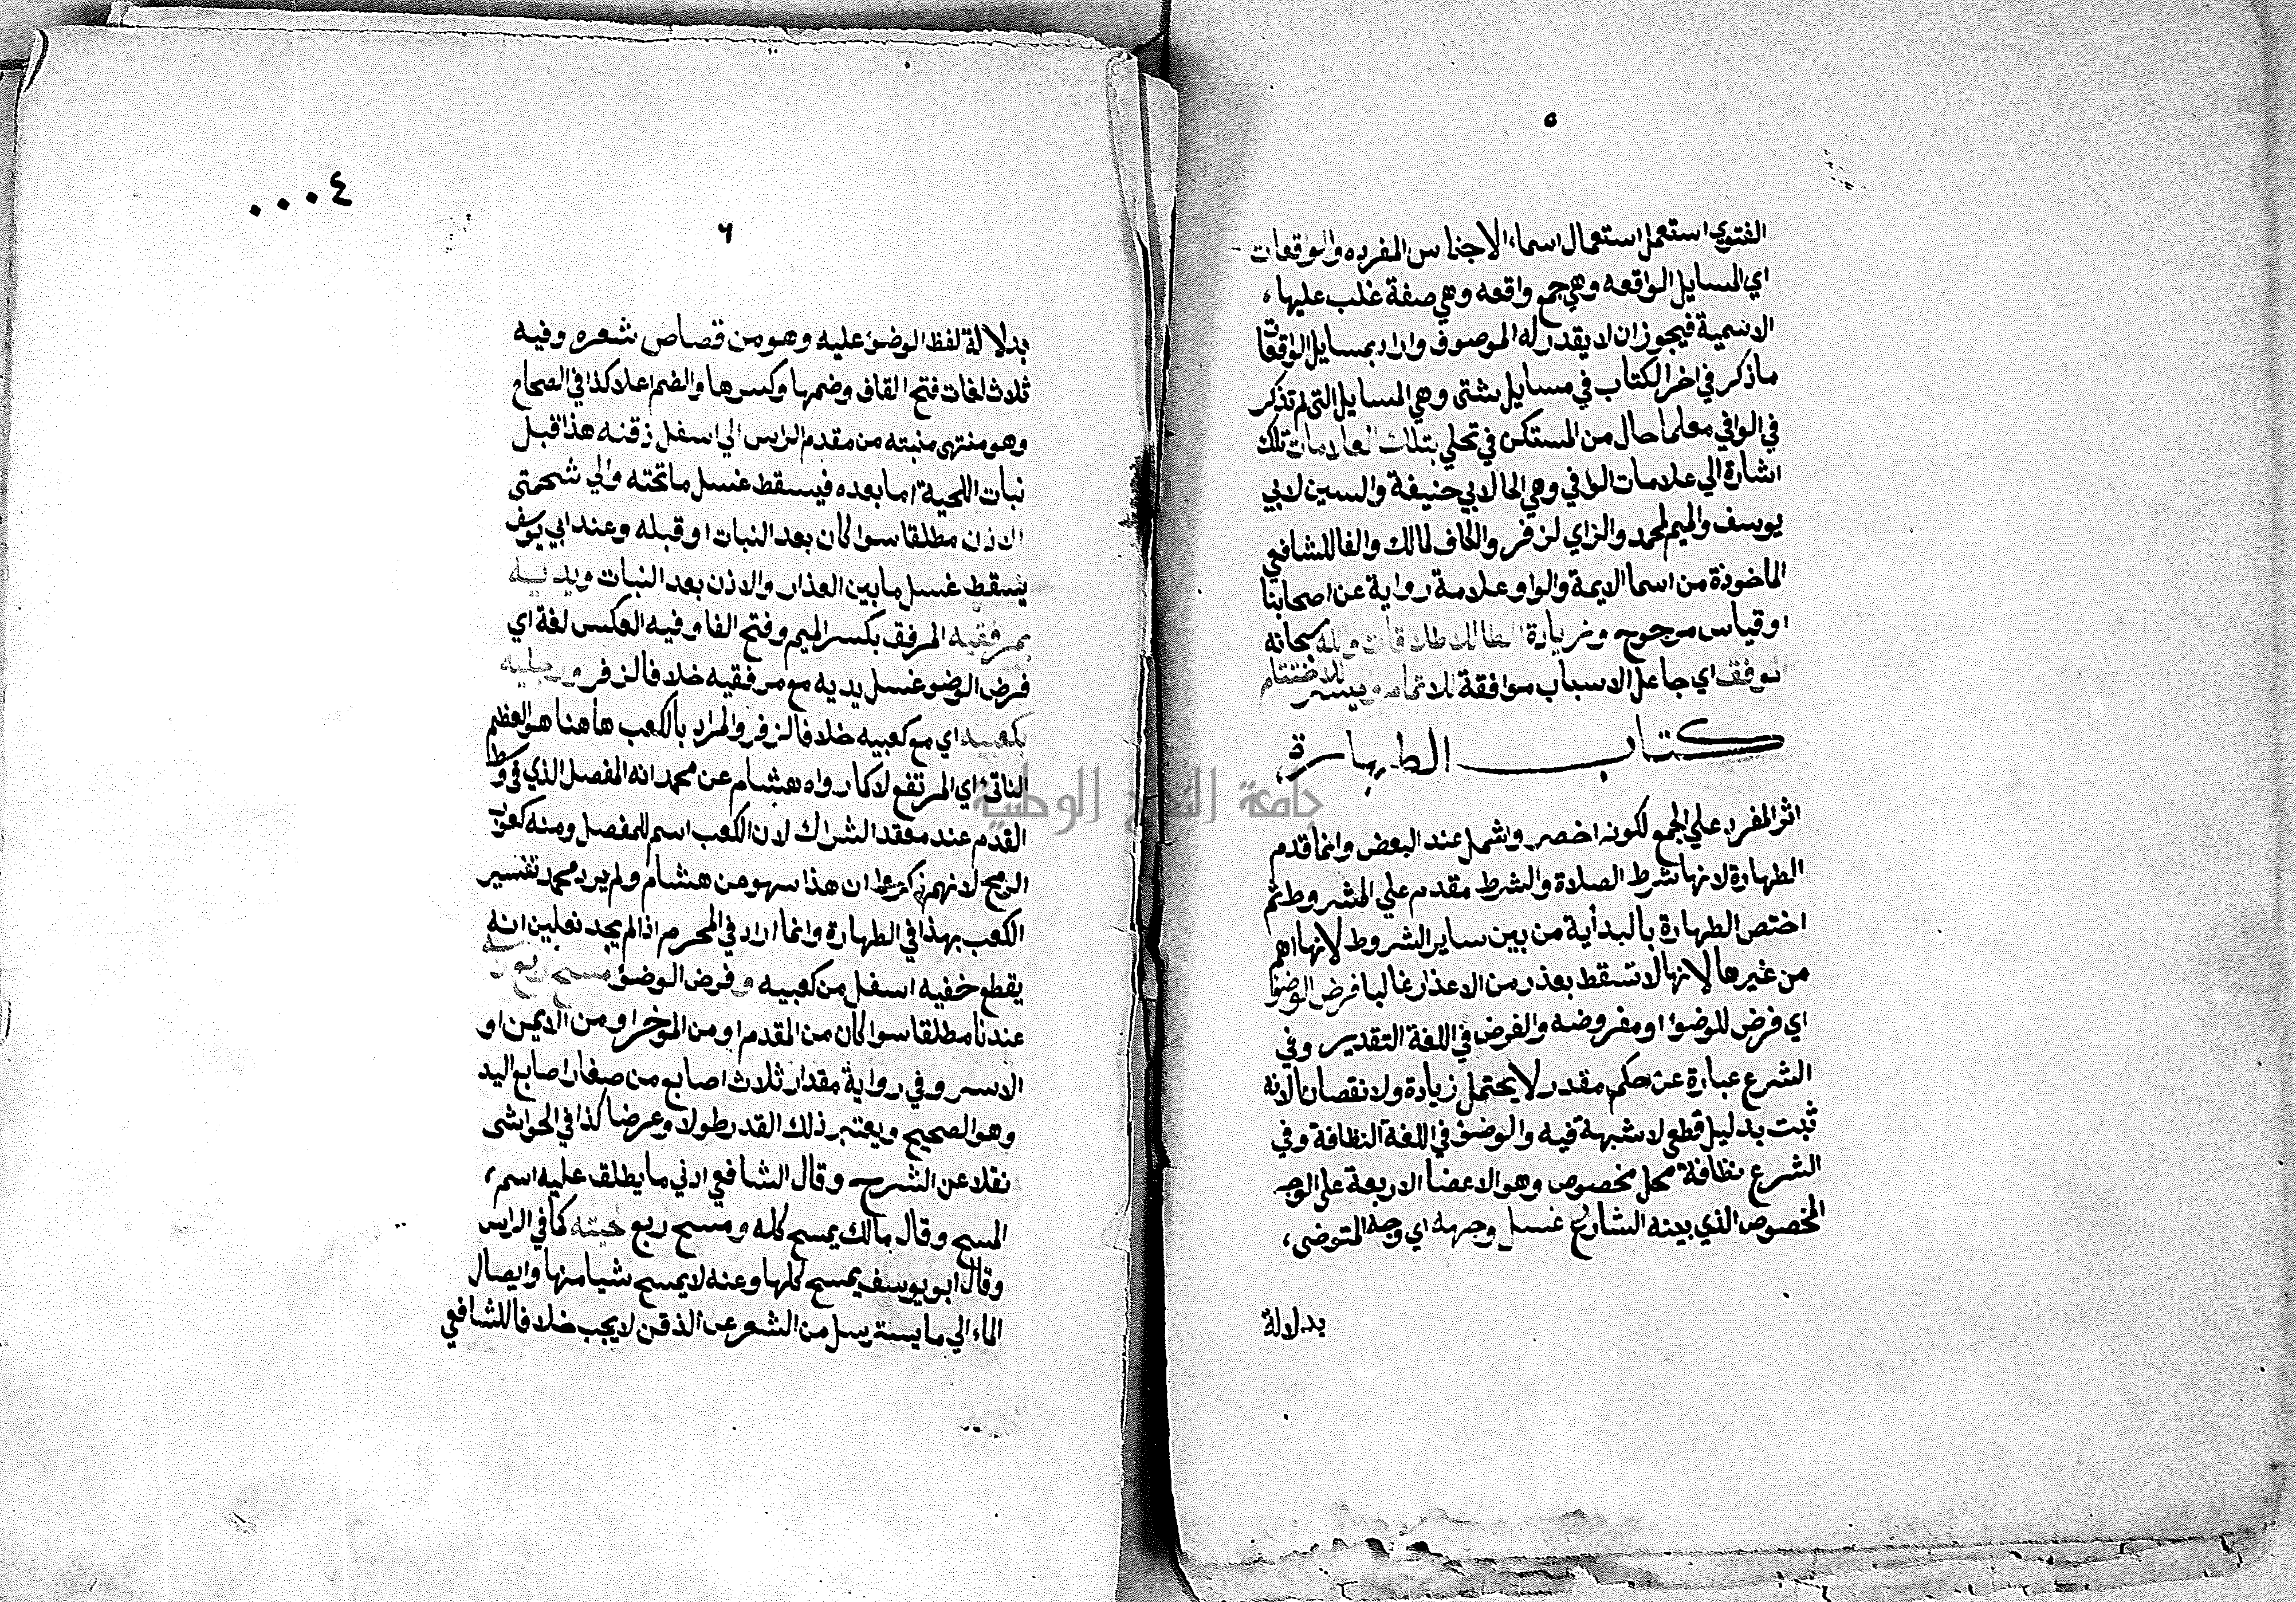 ٥
الفتوي استعمل استعمال اسماء الاجناس المفرده والواقعات
اي المسايل الواقعه وهي جمع واقعه وهي صفة غلب عليها
الاسمية فيجوز ان لا يقدر له الموصوف واراد بمسايل الواقعات
ماذكر في اخر الكتاب في مسايل شتى وهي المسايل التي لم تذكر
في الوافي معلما حال من المستكن في تحلي بتلك العلامات تلك
اشارة الي علامات الوافي وهي الحا لابي حنيفة والسين لابي
يوسف والميم لمحمد والزاي لزفر والكاف لمالك والفا للشافعي
الماخوذة من اسما الايمة والواو علامة رواية عن اصحابنا
او قياس مرجوح وزيادة الطا للاطلاقات والله سبحانه
الموفق اي جاعل الاسباب موافقة للاتمام وميسر للاختتام
كتاب الطهارة
اثر المفرد علي الجمع لكونه اخصر واشمل عند البعض وانما قدم
الطهارة لانها شرط الصلاة والشرط مقدم علي المشروط ثم
اختص الطهارة بالبدأية من بين ساير الشروط لانها اهم
من غيرها لانها لا تسقط بعذر من الاعذار غالبا فرض الوضوء
اي فرض للوضوء او مفروضه والفرض في اللغة التقدير وفي
الشرع عبارة عن حكم مقدر لا يحتمل زيادة ولا نقصانا لانه
ثبت بدليل قطعي لا شبهة فيه والوضوء في اللغة النظافة وفي
الشرع نظافة محل مخصوص وهو الاعضا الاربعة علي الوجه
المخصوص الذي بينه الشارع غسل وجهه اي وجه المتوضي
بدلالة
٠٠٠٤
٦
بدلالة لفظ الوضوء عليه وهو من قصاص شعره وفيه
ثلاث لغات فتح القاف وضمها وكسرها والضم اعلا كذا في الصحاح
وهو منتهى منبته من مقدم الراس الي اسفل ذقنه هذا قبل
نبات اللحية اما بعده فيسقط غسل ما تحته والي شحمتي
الاذن مطلقا سوا كان بعد النبات او قبله وعند ابي يوسف
يسقط غسل ما بين العذار والاذن بعد النبات ويديه
بمرفقيه المرفق بكسر الميم وفتح الفا وفيه العكس لغة اي
فرض الوضو غسل يديه مع مرفقيه خلافا لزفر ورجليه
بكعبيه اي مع كعبيه خلافا لزفر والمراد بالكعب هاهنا هو العظم
الناتئ اي المرتفع لا كما رواه هشام عن محمد انه المفصل الذي في وسط
القدم عند معقد الشراك لان الكعب اسم للمفصل ومنه كعوب
الرمح لانهم ذكروا ان هذا سهو من هشام ولم يرد محمد تفسير
الكعب بهذا في الطهارة وانما اراد في المحرم اذا لم يجد نعلين انه
يقطع خفيه اسفل من كعبيه وفرض الوضوء مسح ربع راسه
عندنا مطلقا سوا كان من المقدم او من الموخر او من الايمن او
الايسر وفي رواية مقدار ثلاث اصابع من صغار اصابع اليد
وهو الصحيح ويعتبر ذلك القدر طولا وعرضا كذا في الحواشي
نقلا عن الشرح وقال الشافعي ادني ما يطلق عليه اسم
المسح وقال مالك يمسح كله ومسح ربع لحيته كما في الراس
وقال ابو يوسف يمسح كلها وعنه لا يمسح شيا منها وايصال
الماء الي ما يسترسل من الشعر عن الذقن لا يجب خلافا للشافعي
جامعة النجاح الوطنية